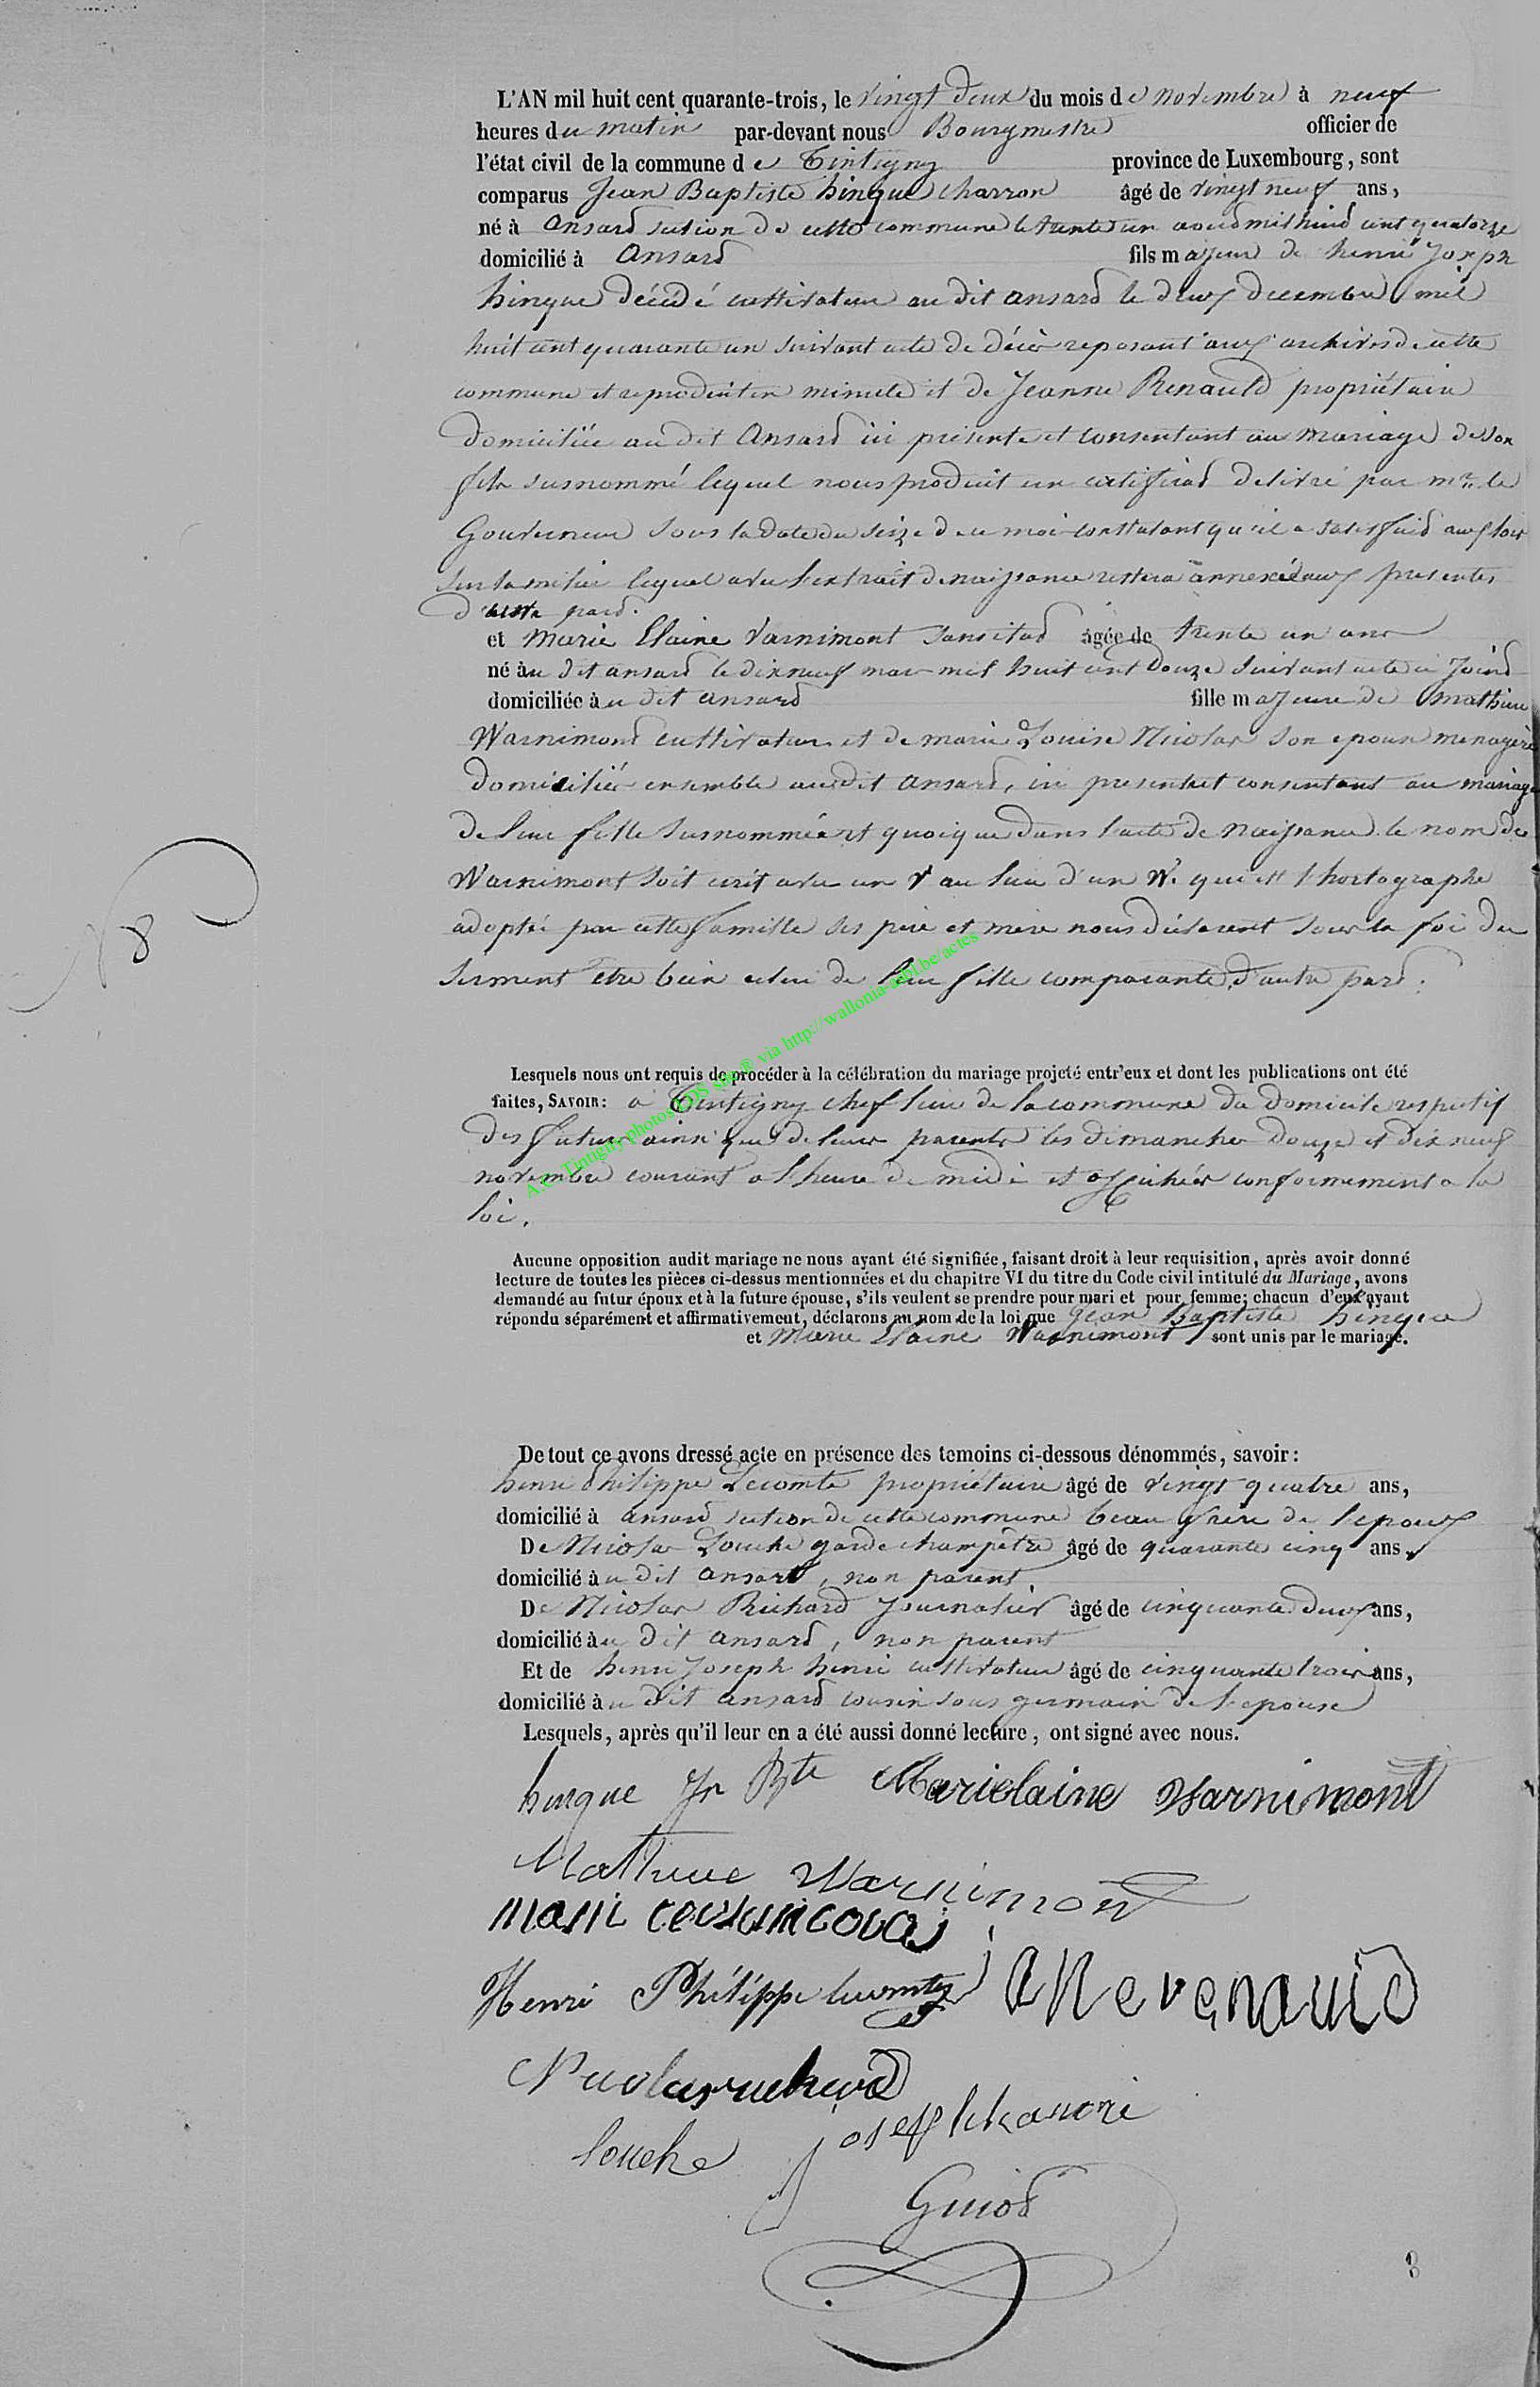 L'AN mil huit cent quarante-trois, le vingt deux du mois de novembre à neuf
heures du matin par-devant nous Bourgmestre officier de
l'état civil de la commune de Tintigny province de Luxembourg, sont
comparus Jean Baptiste hinque charron âgé de vingt neuf ans,
né à ansard section de cette commune le trente un aoud mil huid cent quatorze
domicilié à Ansard fils majeur de henri Joseph
hinque décédé cultivateur au dit ansard le deux decembre mil
huit cent quarante un suivant acte de décès reposant aux archives de cette
commune et reproduit en minute et de Jeanne Renauld propriétaire
domiciliée au dit Ansard ici présente et consentant au mariage de son
fils susnommé lequel nous produit un certificad delivré par mr. le
Gouverneur sous la date du seize de ce mois constatant qu'il a satisfaid aux lois
sur la milice lequel avec l'extrait de naissance restera annexé aux presentes
d'une pard.
et Marie Elaine Varnimont sans etad âgée de trente un ans
né au dit ansard le dix neuf mars mil huit cent douze suivant acte ci joind
domiciliée au dit ansard fille majeure de Mathieu
Warnimond cultivateur et de marie Louise Nicolas son epouse menagère
domiciliés ensemble au dit Ansard, ici present et consentant au mariage
de leur fille susnommée et quoique dans l'acte de naissance le nom de
Warnimont soit écrit avec un V au lieu d'un W. qui est l'hortographe
adoptée par cette famille ses père et mère nous déclarent sous la foi du
serment etre bien celui de leur fille comparante, d'autre pard.
N 8
Lesquels nous ont requis de procéder à la célébration du mariage projeté entr'eux et dont les publications ont été
faites, SAVOIR: à Tintigny chef lieu de la commune du domicile respectif
des futurs ainsi que de leurs parents les dimanches douze et dix neuf
novembre courant a l'heure de midi et affichées conformement a la
loi.
A.C. Tintigny photos via http://wallonia-asbl.be/actes
Aucune opposition audit mariage ne nous ayant été signifiée, faisant droit à leur requisition, après avoir donné
lecture de toutes les pièces ci-dessus mentionnées et du chapitre VI du titre du Code civil intitulé du Mariage, avons
demandé au futur époux et à la future épouse, s'ils veulent se prendre pour mari et pour femme; chacun d'eux ayant
répondu séparément et affirmativement, déclarons au nom de la loi que Jean Baptiste hinque
et Marie Elaine Warnimont sont unis par le mariage.
De tout ce avons dressé acte en présence des temoins ci-dessous dénommés, savoir:
henri Philippe Lecomte propriétaire âgé de vingt quatre ans,
domicilié à ansard section de cette commune beau frère de l'epoux
De Nicolas Louche garde champêtre âgé de quarante cinq ans,
domicilié au dit ansart, non parent
De Nicolas Richard Journalier âgé de cinquante deux ans,
domicilié au dit ansard, non parent
Et de henri Joseph henri cultivateur âgé de cinquante trois ans,
domicilié au dit ansard cousin sous germain de l'epouse
Lesquels, après qu'il leur en a été aussi donné lecture, ont signé avec nous.
hinque Jn Bte Marielaine Warnimont
Mathieu Warnimont
Henri Philippe Lecomte
ane renauld
Nicolas richard
Louche
Guiod
8